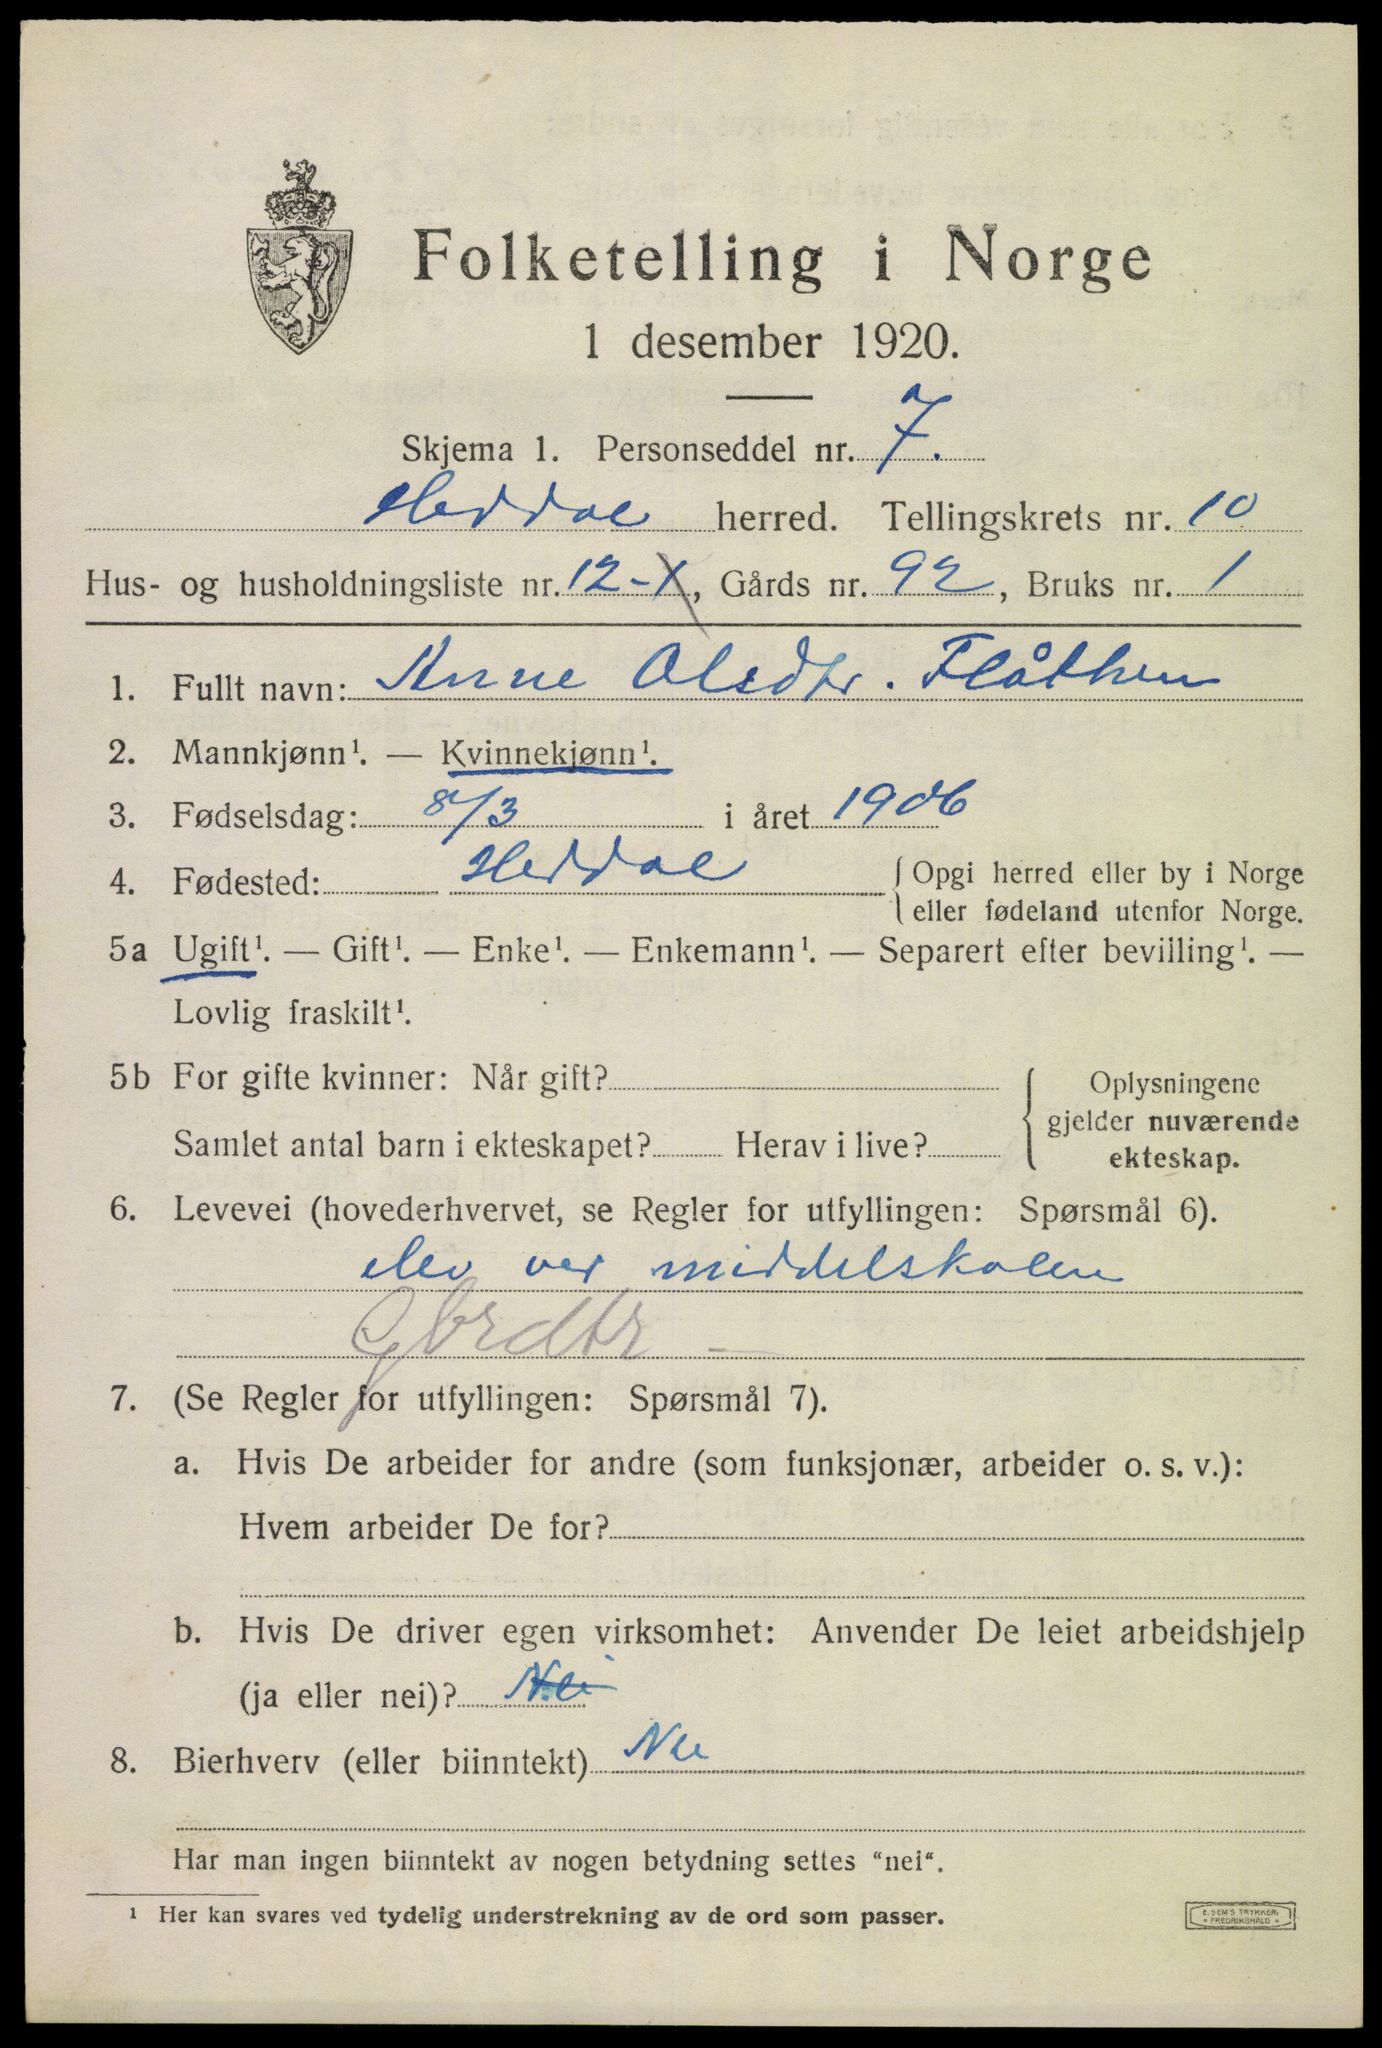 Folketelling i Norge
1 desember 1920.
Skjema 1. Personseddel nr. 7.
Heddal herred. Tellingskrets nr. 10
Hus- og husholdningsliste nr. 12-1, Gårds nr. 92, Bruks nr. 1
1. Fullt navn: Anne Olsdtr. Flåthen
2. Mannkjønn¹. — Kvinnekjønn¹.
3. Fødselsdag: 8/3 i året 1906
4. Fødested: Heddal { Opgi herred eller by i Norge
eller fødeland utenfor Norge.
5a Ugift¹. — Gift¹. — Enke¹. — Enkemann¹. — Separert efter bevilling¹. —
Lovlig fraskilt¹.
5b For gifte kvinner: Når gift? { Oplysningene
gjelder nuværende
Samlet antal barn i ekteskapet? Herav i live?
ekteskap.
6. Levevei (hovederhvervet, se Regler for utfyllingen: Spørsmål 6).
elev ved middelskolen
Gbrdtr —
7. (Se Regler for utfyllingen: Spørsmål 7).
a. Hvis De arbeider for andre (som funksjonær, arbeider o. s. v.):
Hvem arbeider De for?
b. Hvis De driver egen virksomhet: Anvender De leiet arbeidshjelp
(ja eller nei)? Nei
8. Bierhverv (eller biinntekt) Nei
Har man ingen biinntekt av nogen betydning settes “nei“.
¹ Her kan svares ved tydelig understrekning av de ord som passer.
E. SEM'S TRYKKERI
FREDRIKSHALD